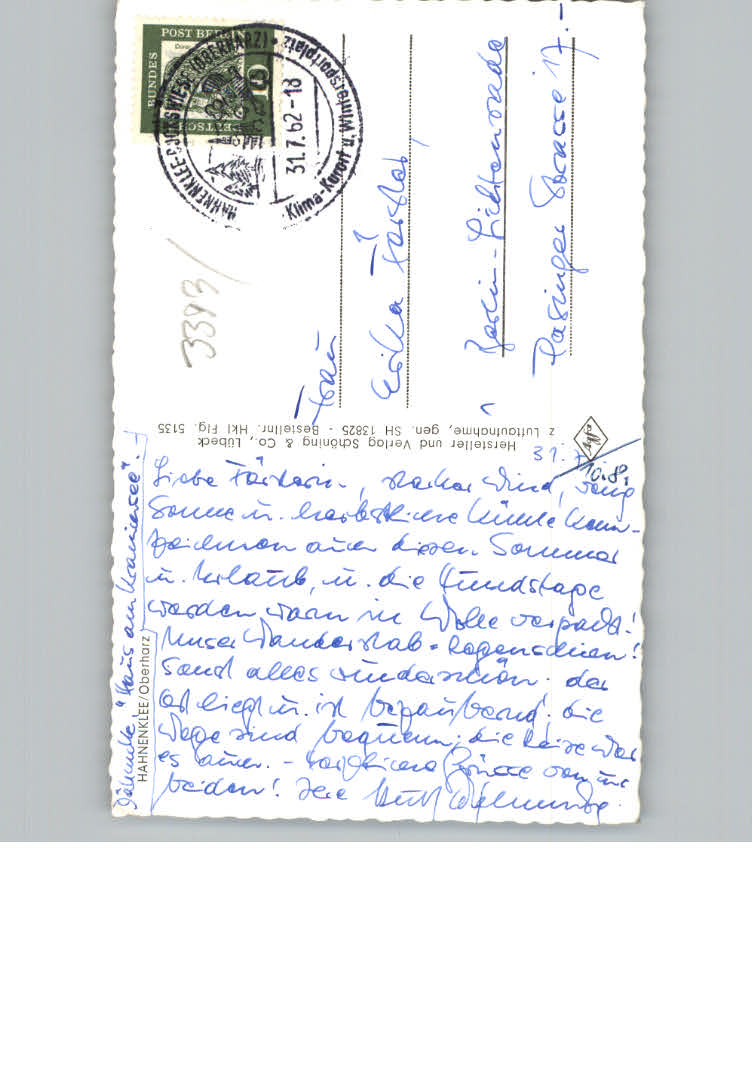 DEUTSCHE BUNDESPOST BERLIN
10
HAHNENKLEE-BOCKSWIESE (OBERHARZ)
31.7.62-18
Klima-Kurort u. Wintersportplatz
3393/
Frau
Erika Förster,
Berlin-Lichtenrade
Pasinger Strasse 17.-
Hersteller und Verlag Schöning & Co., Lübeck
z Luftaufnahme, gen. SH 13825 - Bestellnr. Hkl Flg. 5135
Agfa
31.7.
10.8.
Liebe Försterin, starker Wind, wenig
Sonne u. herbstliche Kühle kenn-
zeichnen auch diesen Sommer
u. Urlaub, u. die Hundstage
werden warm in Wolle verpackt!
Unser Wanderstab = Regenschirm!
Sonst alles wunderschön. der
Ort liegt u. ist bezaubernd; die
Wege sind bequem; die Reise war
es auch. - Herzlichere Grüsse von uns
beiden! Ihre
"Haus am Kranichsee".
HAHNENKLEE/Oberharz